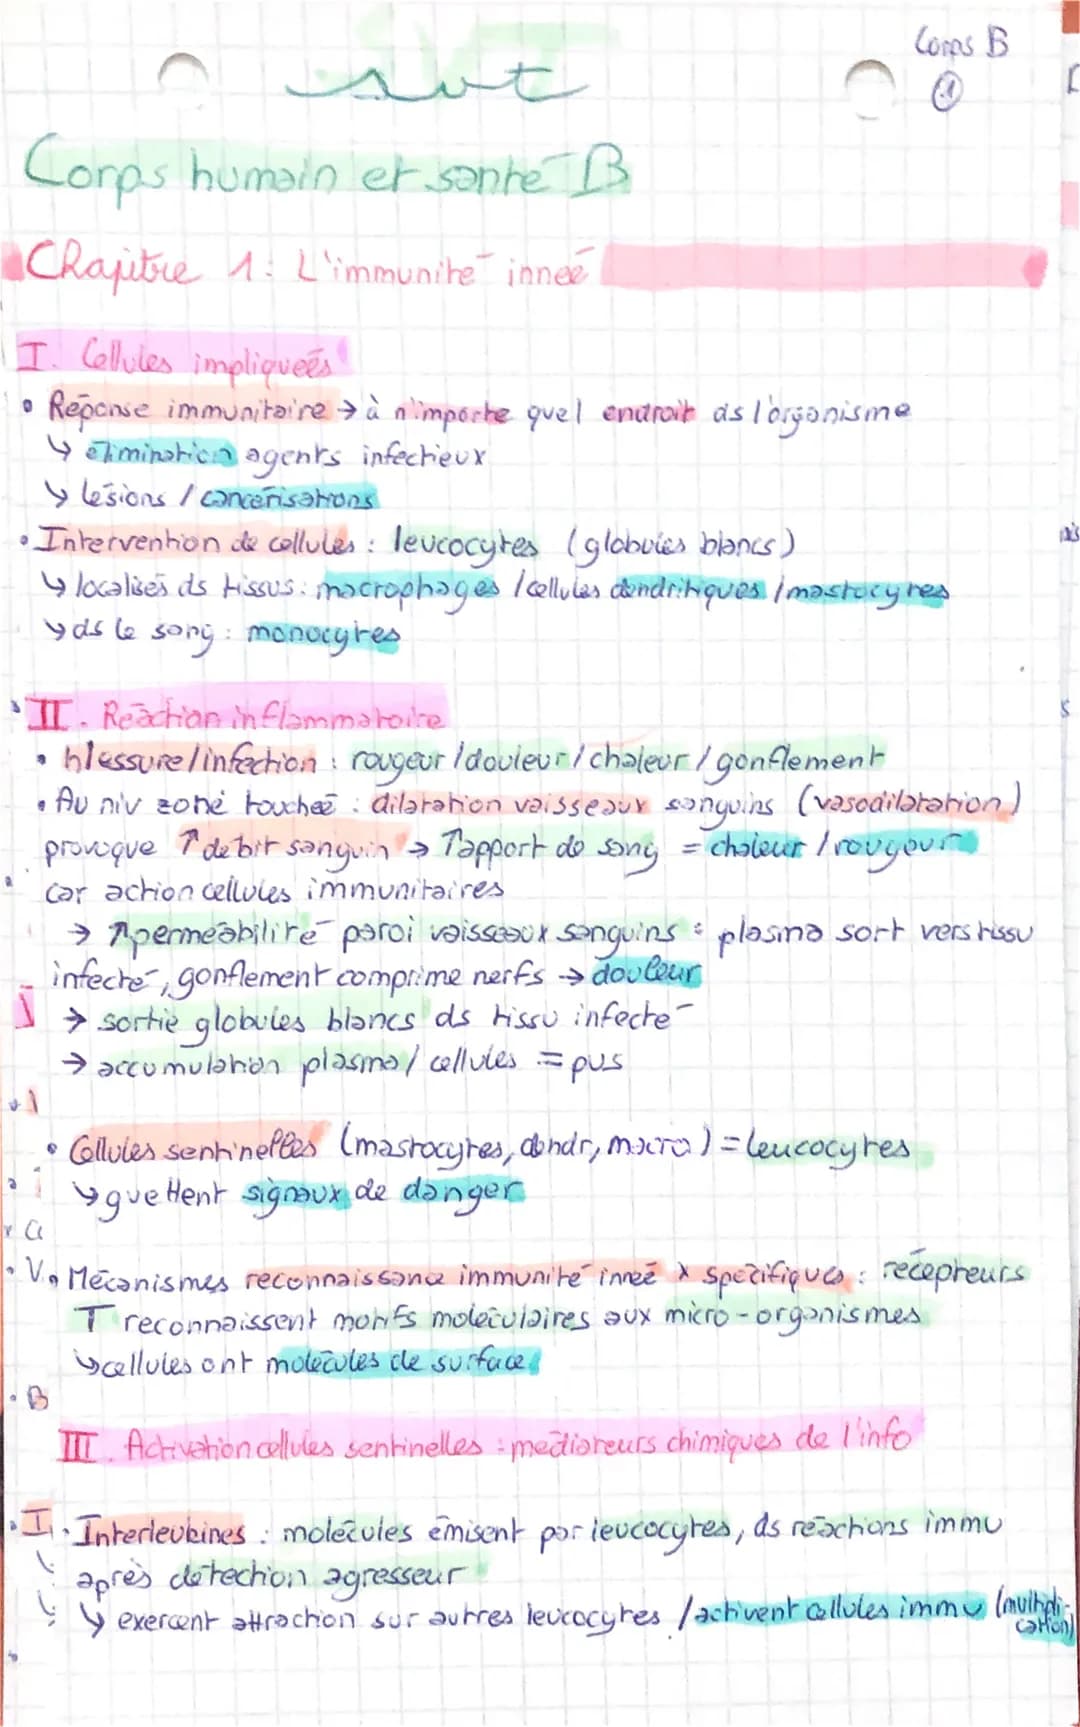 Corps B
svt
1
Corps humain et santé B
Chapitre 1: L'immunité innée
I. Cellules impliquées
• Réponse immunitaire → à n'importe quel endroit ds l'organisme
↳ élimination agents infectieux
↳ lésions / cancérisations
• Intervention de cellules : leucocytes (globules blancs)
↳ localisés ds tissus : macrophages / cellules dendritiques / mastocytes
↳ ds le sang : monocytes
II. Réaction inflammatoire
• blessure/infection : rougeur / douleur / chaleur / gonflement
• Au niv zone touchée : dilatation vaisseaux sanguins (vasodilatation)
provoque ↑ débit sanguin → ↑ apport de sang = chaleur / rougeur
car action cellules immunitaires
→ ↑ perméabilité paroi vaisseaux sanguins : plasma sort vers tissu
infecté, gonflement comprime nerfs → douleur
→ sortie globules blancs ds tissu infecté
→ accumulation plasma / cellules = pus
• Cellules sentinelles (mastocytes, dendr, macro) = leucocytes
↳ guettent signaux de danger
• Mécanismes reconnaissance immunité innée x spécifiques : récepteurs
T reconnaissent motifs moléculaires aux micro-organismes
↳ cellules ont molécules de surface
III. Activation cellules sentinelles : médiateurs chimiques de l'info
• Interleukines : molécules émisent par leucocytes, ds réactions immu
après détection agresseur
↳ exercent attraction sur autres leucocytes / activent cellules immu (multipli-
cation)